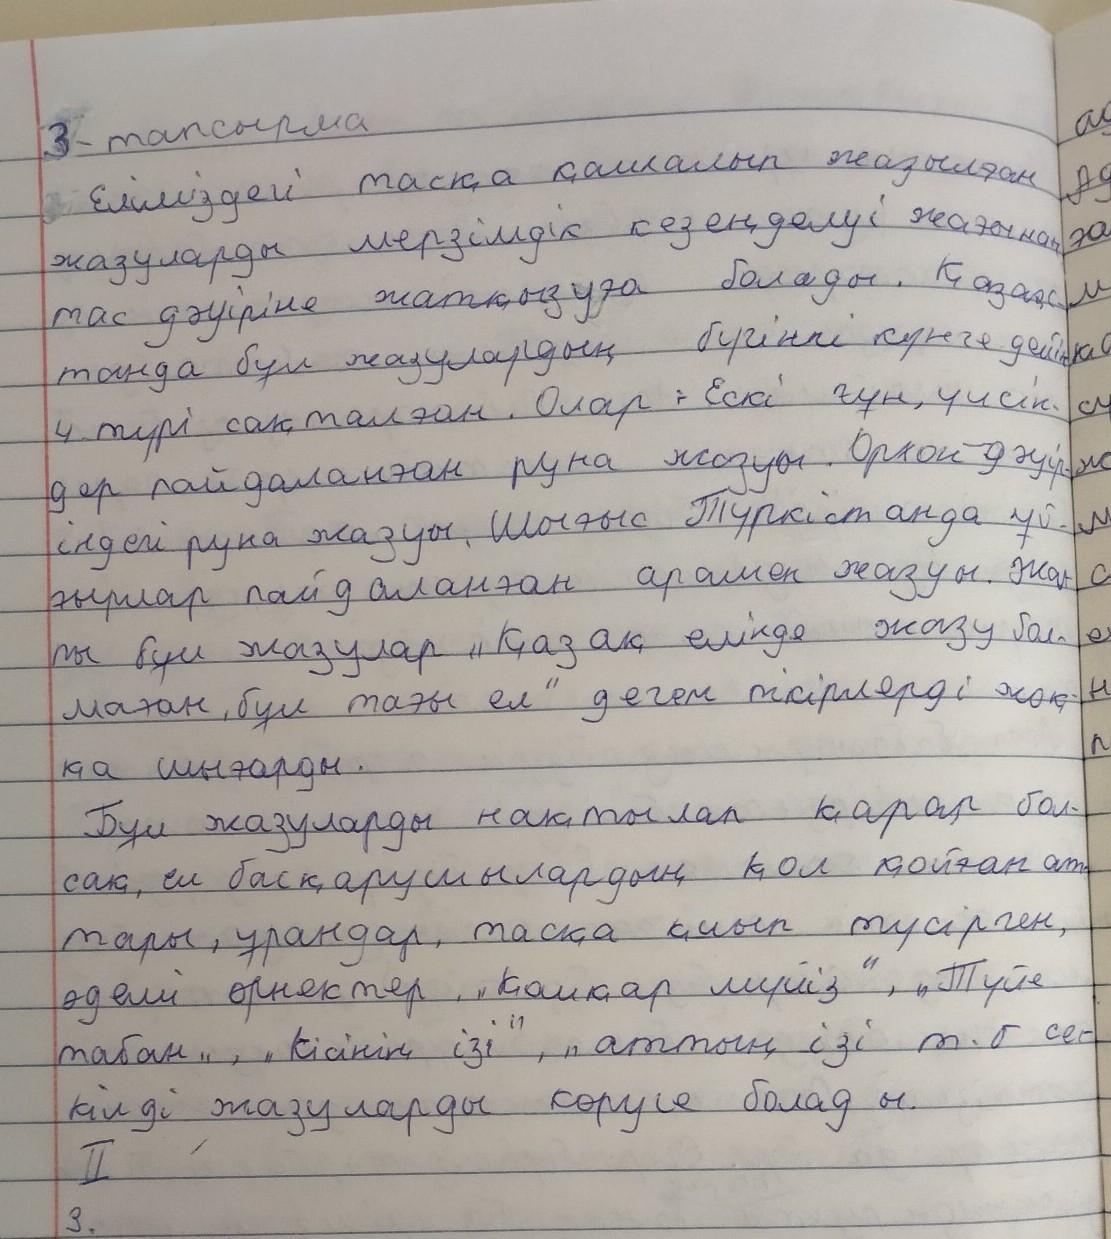 3-тапсырма
Еліміздегі тасқа қашалып жазылған
жазуларды мерзімдік кезеңделуі жағынан
тас дәуіріне жатқызуға болады. Қазақс-
танда бұл жазулардың бүгінгі күнге дейін
4 түрі сақталған. Олар: Ескі ғұн, үйсін-
дер пайдаланған руна жазуы. Орхон дәуір-
індегі руна жазуы, Шығыс Түркістанда ұй-
ғырлар пайдаланған арамен жазуы. Жал
пы бұл жазулар „Қазақ елінде жазу бол-
маған, бұл тағы ел" деген пікірлерді жоқ-
қа шығарды.
Бұл жазуларды нақтылап қарар бол-
сақ, ел басқарушылардың қол қойған ат
тары, ұрандар, тасқа қиып түсірген,
әдемі өрнектер, „қошқар мүйіз", „Түйе
табан„, „кісінің ізі", „аттың ізі т.б сек
кілді жазуларды көруге болады.
II
3.